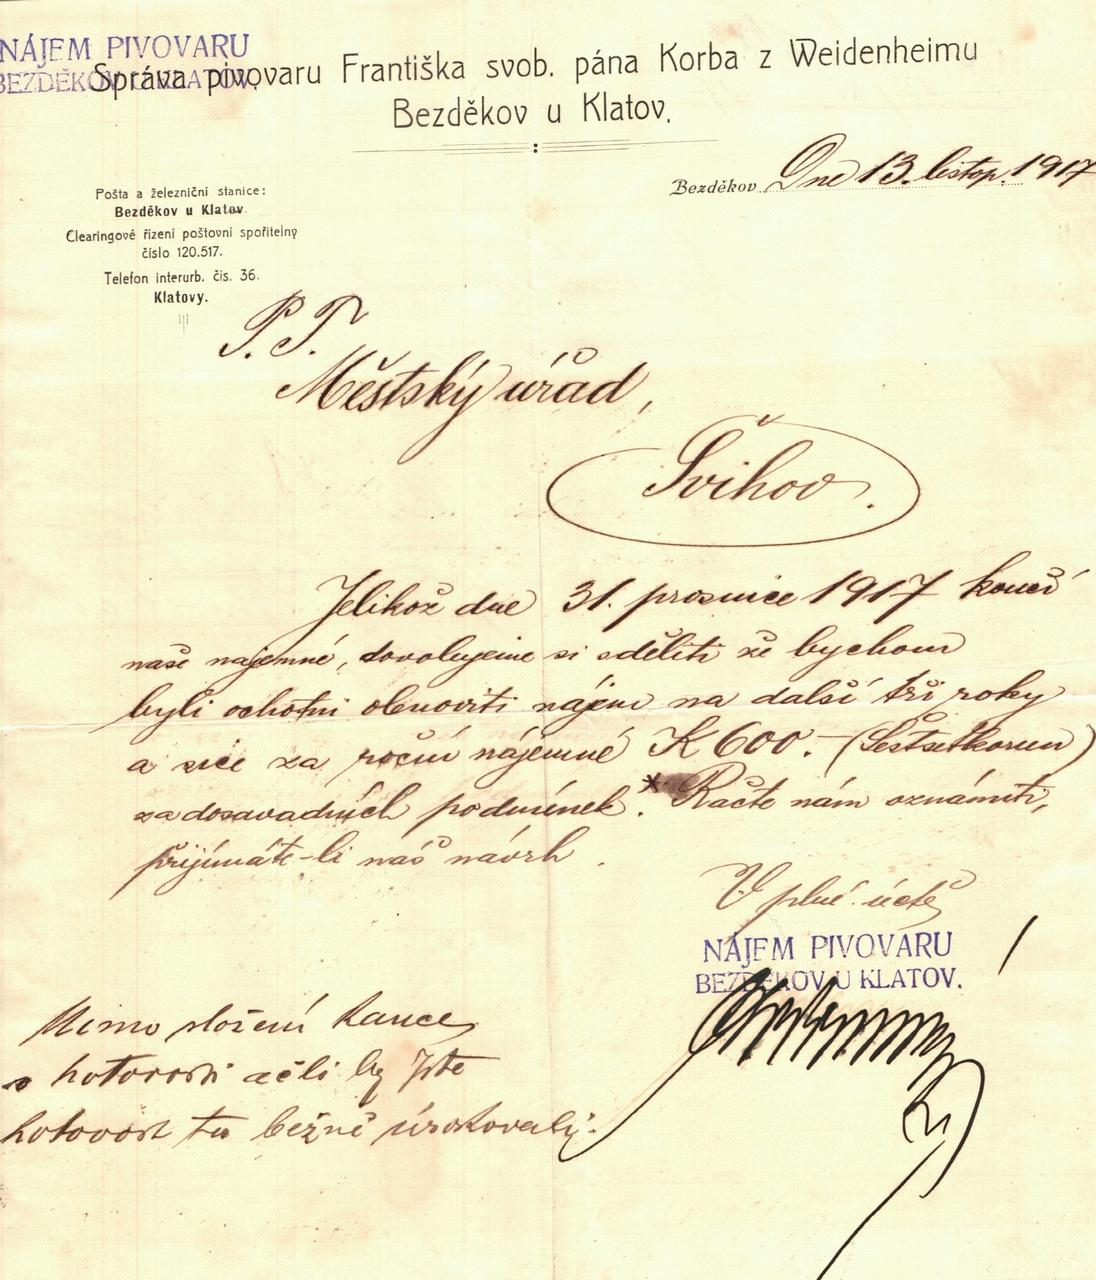 NÁJEM PIVOVARU
BEZDĚKOV U KLATOV.
Správa pivovaru Františka svob. pána Korba z Weidenheimu
Bezděkov u Klatov.
Bezděkov Dne 13. listop. 1917
Pošta a železniční stanice:
Bezděkov u Klatov.
Clearingové řízení poštovní spořitelny
číslo 120.517.
Telefon interurb. čís. 36.
Klatovy.
P. T.
Městský úřad,
Švihov.
Jelikož dne 31. prosince 1917 končí
naše nájemné, dovolujeme si sděliti že bychom
byli ochotni obnoviti nájem na další tři roky
a sice za roční nájemné K 600.- (Šestsetkorun)
za dosavadních podmínek. * Račte nám oznámiti,
přijímáte-li náš návrh.
V plné úctě
NÁJEM PIVOVARU
BEZDĚKOV U KLATOV.
Mimo složení kauce
v hotovosti ačli by jste
hotovost tu běžně úrokovali.-